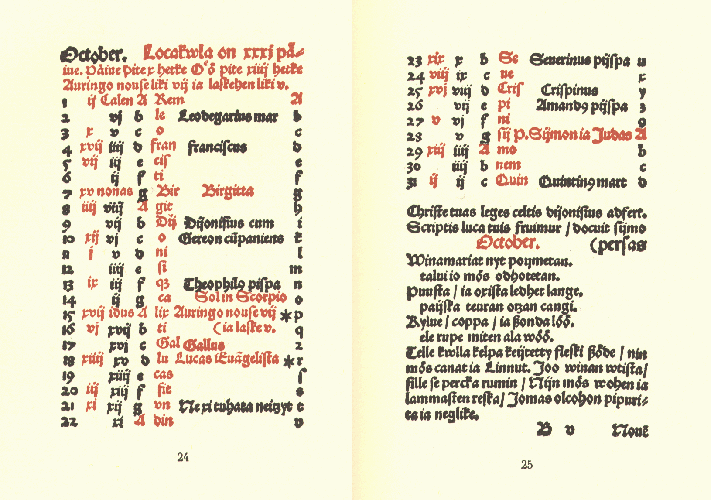 October. Locakwla on xxxj pä-
iue. Päiue pite x hetke Oʾö pite xiiij hetke
Auringo nouse liki vij ia laskehen liki v.
1 ij Calen A Rem A
2 vj b le Leodegarius mar b
3 x v c o c
4 xvij iiij d fran franciscus d
5 vij iij e cis e
6 ij f ti f
7 xv nonas g Bir Birgitta g
8 iiij viij A git h
9 vij b Dij Dijonisius cum i
10 xij vj c o Gereon cūpaniens k
11 j v d ni l
12 iiij e si m
13 ix iij f q3 Theophil9 pispa n
14 ij g ca Sol in Scorpio o
15 xvij idus A lix Auringo nouse vij *p
16 vj xvij b ti (ia laske v. q
17 xvj c Gal Gallus 2
18 xiiij xv d lu Lucas Euāgelista *r
19 xiiij e cas s
20 iij xiij f fit s
21 xi xij g vn Ne xi tuhata neitzyt t
22 xi A din v
24
23 xix x b Se Seuerinus pijspa u
24 viij ix c ue x
25 xvj viij d Cris Crispinus y
26 vij e pi Amand9 pijspa 3
27 v vj f ni
28 v g sij p. Sijmon ia Judas A
29 xiij iiij A mo b
30 iiij b nem c
31 ij ij c Quin Quintin9 mart d
Christe tuas leges celtis dijonisius adfert.
Scriptis luca tuis fruimur / docuit sijmo
October. (persas
Winamariat nyt poijmetan.
talui io mös odhotetan.
Puusta / ia oxista ledhet lange.
paijska teuran otzan cangi.
Kylue / coppa / ia honda löö.
ele rupe miten ala wöö.
Telle kwlla kelpa keijtetty fleski ßöde / nin
mös canat ia Linnut. Joo winan wtista /
sille se percka rumin / Nijn mös wohen ia
lammasten reska / Jomas olcohon pipuri-
ta ia neglike.
B v Nouē
25